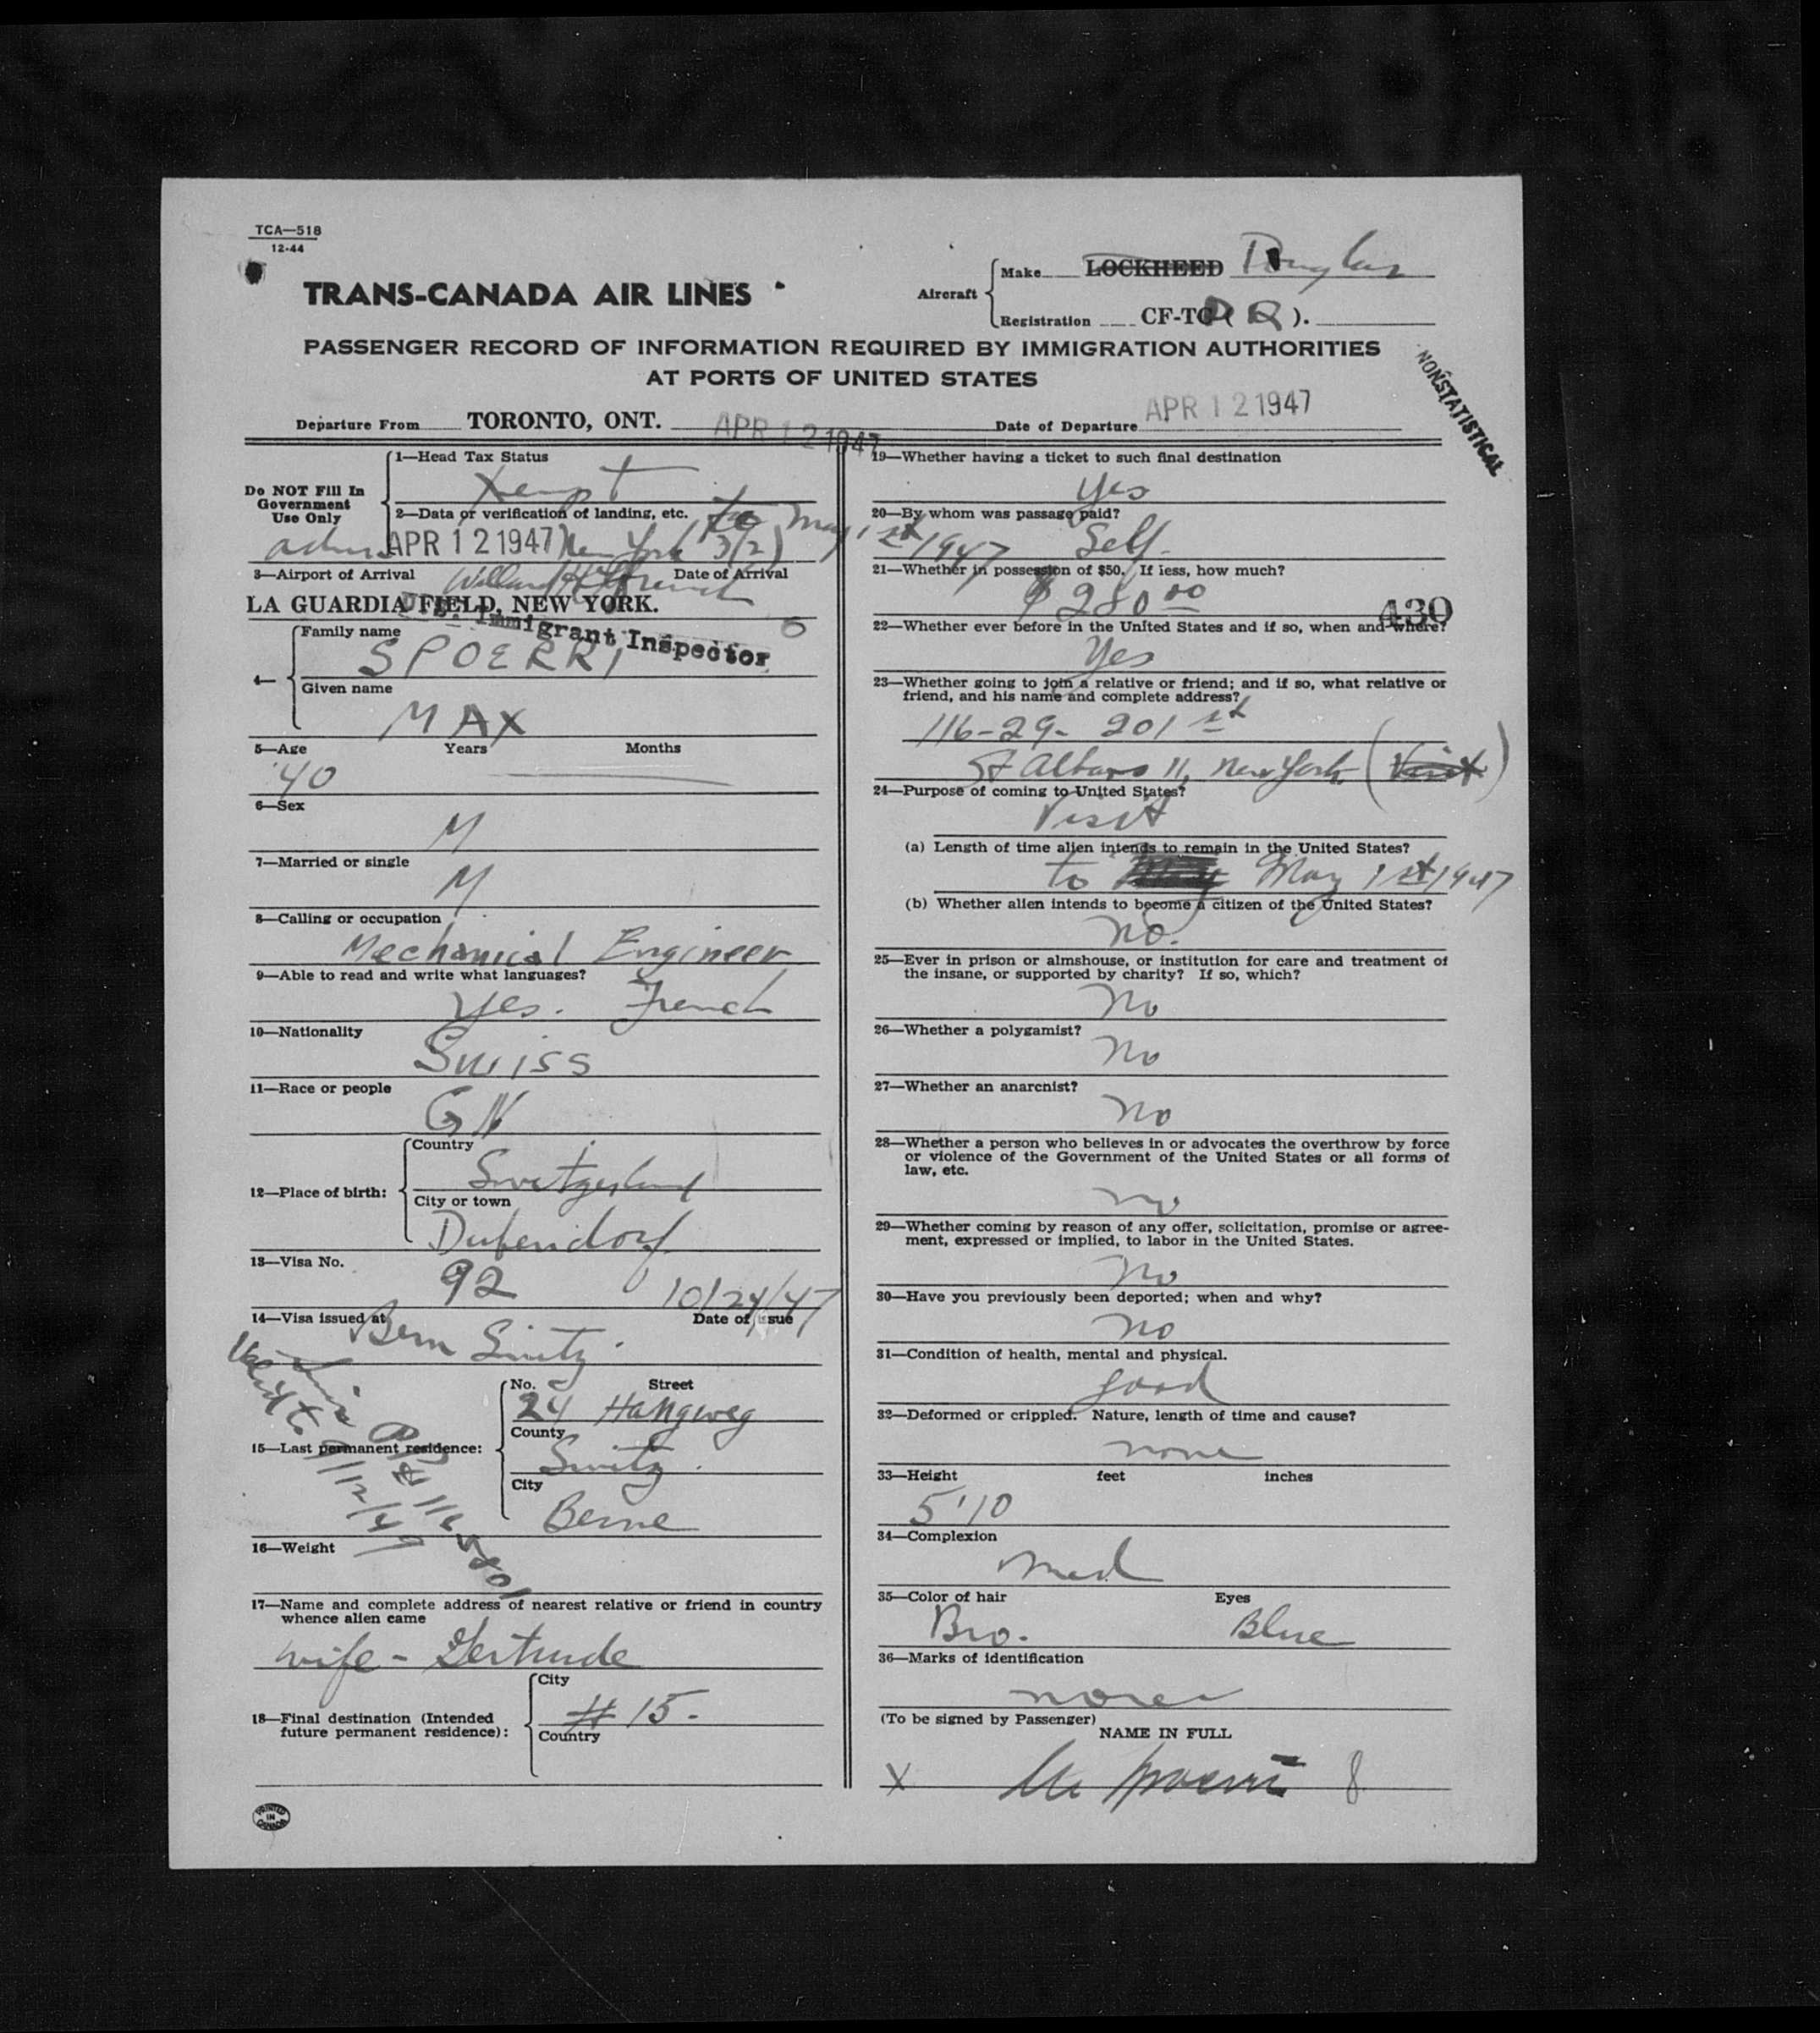 TCA—518
12-44
TRANS-CANADA AIR LINES
Aircraft
Make LOCKHEED Douglas
Registration CF-TC ( R ).
PASSENGER RECORD OF INFORMATION REQUIRED BY IMMIGRATION AUTHORITIES
AT PORTS OF UNITED STATES
NONSTATISTICAL
Departure From TORONTO, ONT. APR 12 1947
Date of Departure APR 12 1947
Do NOT Fill In
Government
Use Only
1—Head Tax Status
Xempt
2—Data or verification of landing, etc. to May 1st 1947
APR 12 1947 New York 3(2)
3—Airport of Arrival Date of Arrival
LA GUARDIA FIELD, NEW YORK.
U.S. Immigrant Inspector
4—
Family name
SPOERRI
Given name
MAX
5—Age Years Months
40
6—Sex
M
7—Married or single
M
8—Calling or occupation
Mechanical Engineer
9—Able to read and write what languages?
Yes. French
10—Nationality
Swiss
11—Race or people
GN
12—Place of birth:
Country
Switzerland
City or town
Dubendorf
13—Visa No.
92 10/24/47
14—Visa issued at Date of issue
Bern Switz.
15—Last permanent residence:
No. Street
24 Hangweg
County
Switz.
City
Berne
16—Weight
17—Name and complete address of nearest relative or friend in country
whence alien came
wife - Gertrude
18—Final destination (Intended
future permanent residence):
City
# 15.
Country
PRINTED
IN
CANADA
19—Whether having a ticket to such final destination
Yes
20—By whom was passage paid?
Self.
21—Whether in possession of $50. If less, how much?
$280.00
430
22—Whether ever before in the United States and if so, when and where?
Yes
23—Whether going to join a relative or friend; and if so, what relative or
friend, and his name and complete address?
116-29- 201 st
St Albans 11, New York (Visit)
24—Purpose of coming to United States?
Visit
(a) Length of time alien intends to remain in the United States?
to May May 1st 1947
(b) Whether alien intends to become a citizen of the United States?
No.
25—Ever in prison or almshouse, or institution for care and treatment of
the insane, or supported by charity? If so, which?
No
26—Whether a polygamist?
No
27—Whether an anarchist?
No
28—Whether a person who believes in or advocates the overthrow by force
or violence of the Government of the United States or all forms of
law, etc.
No
29—Whether coming by reason of any offer, solicitation, promise or agree-
ment, expressed or implied, to labor in the United States.
No
30—Have you previously been deported; when and why?
No
31—Condition of health, mental and physical.
good
32—Deformed or crippled. Nature, length of time and cause?
none
33—Height feet inches
5'10
34—Complexion
Med
35—Color of hair Eyes
Bro. Blue
36—Marks of identification
none
(To be signed by Passenger)
NAME IN FULL
X M Spoerri 8